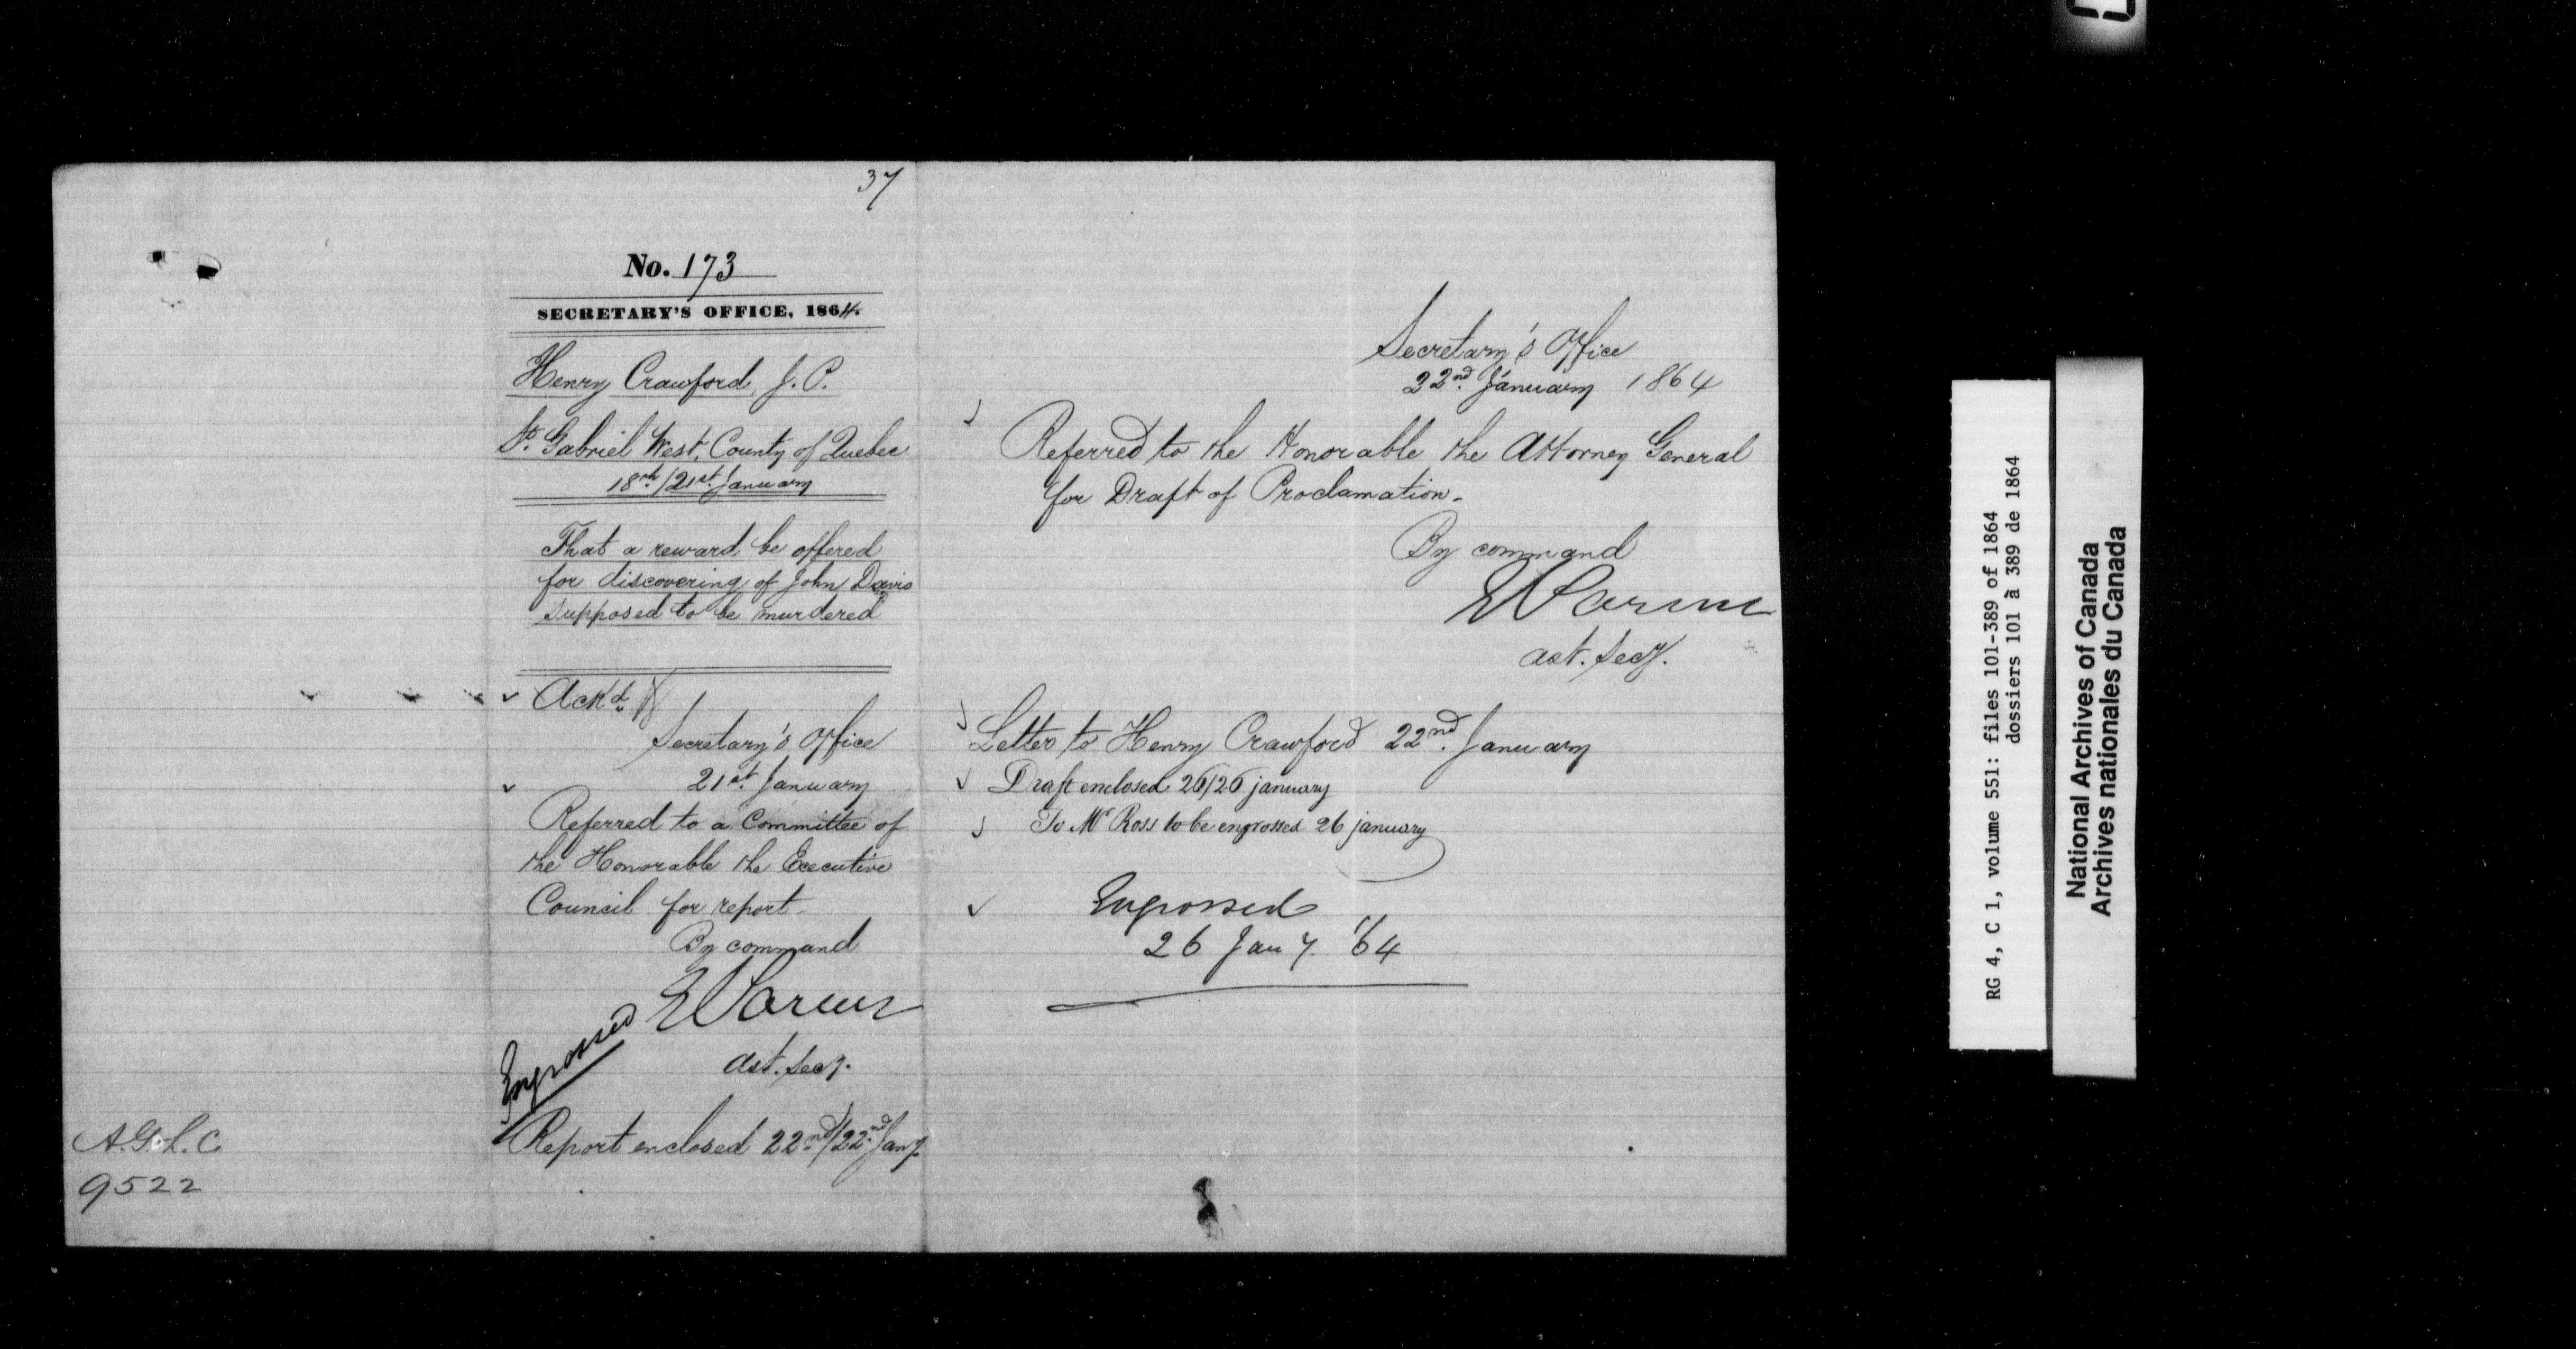 37
No. 173
SECRETARY'S OFFICE, 1864.
Henry Crawford, J. P.
St. Gabriel West, County of Quebec
18th/21st January
That a reward be offered
for discovering of John Davis
supposed to be murdered
Ackd.
Secretary's Office
21st January
Referred to a Committee of
the Honorable the Executive
Council for report
By command
E Parent
Ast. Secy.
Engrossed
Report enclosed 22nd/22nd Jany.
A.G.L.C.
9522
Secretary's Office
22nd January 1864
Referred to the Honorable the Attorney General
for Draft of Proclamation.
By command
E Parent
Ast. Secy.
Letter to Henry Crawford 22nd January
Draft enclosed 26/26 january
To Mr Ross to be engrossed 26 january
Engrossed
26 Jany. '64
RG 4, C 1, volume 551: files 101-389 of 1864
dossiers 101 à 389 de 1864
National Archives of Canada
Archives nationales du Canada